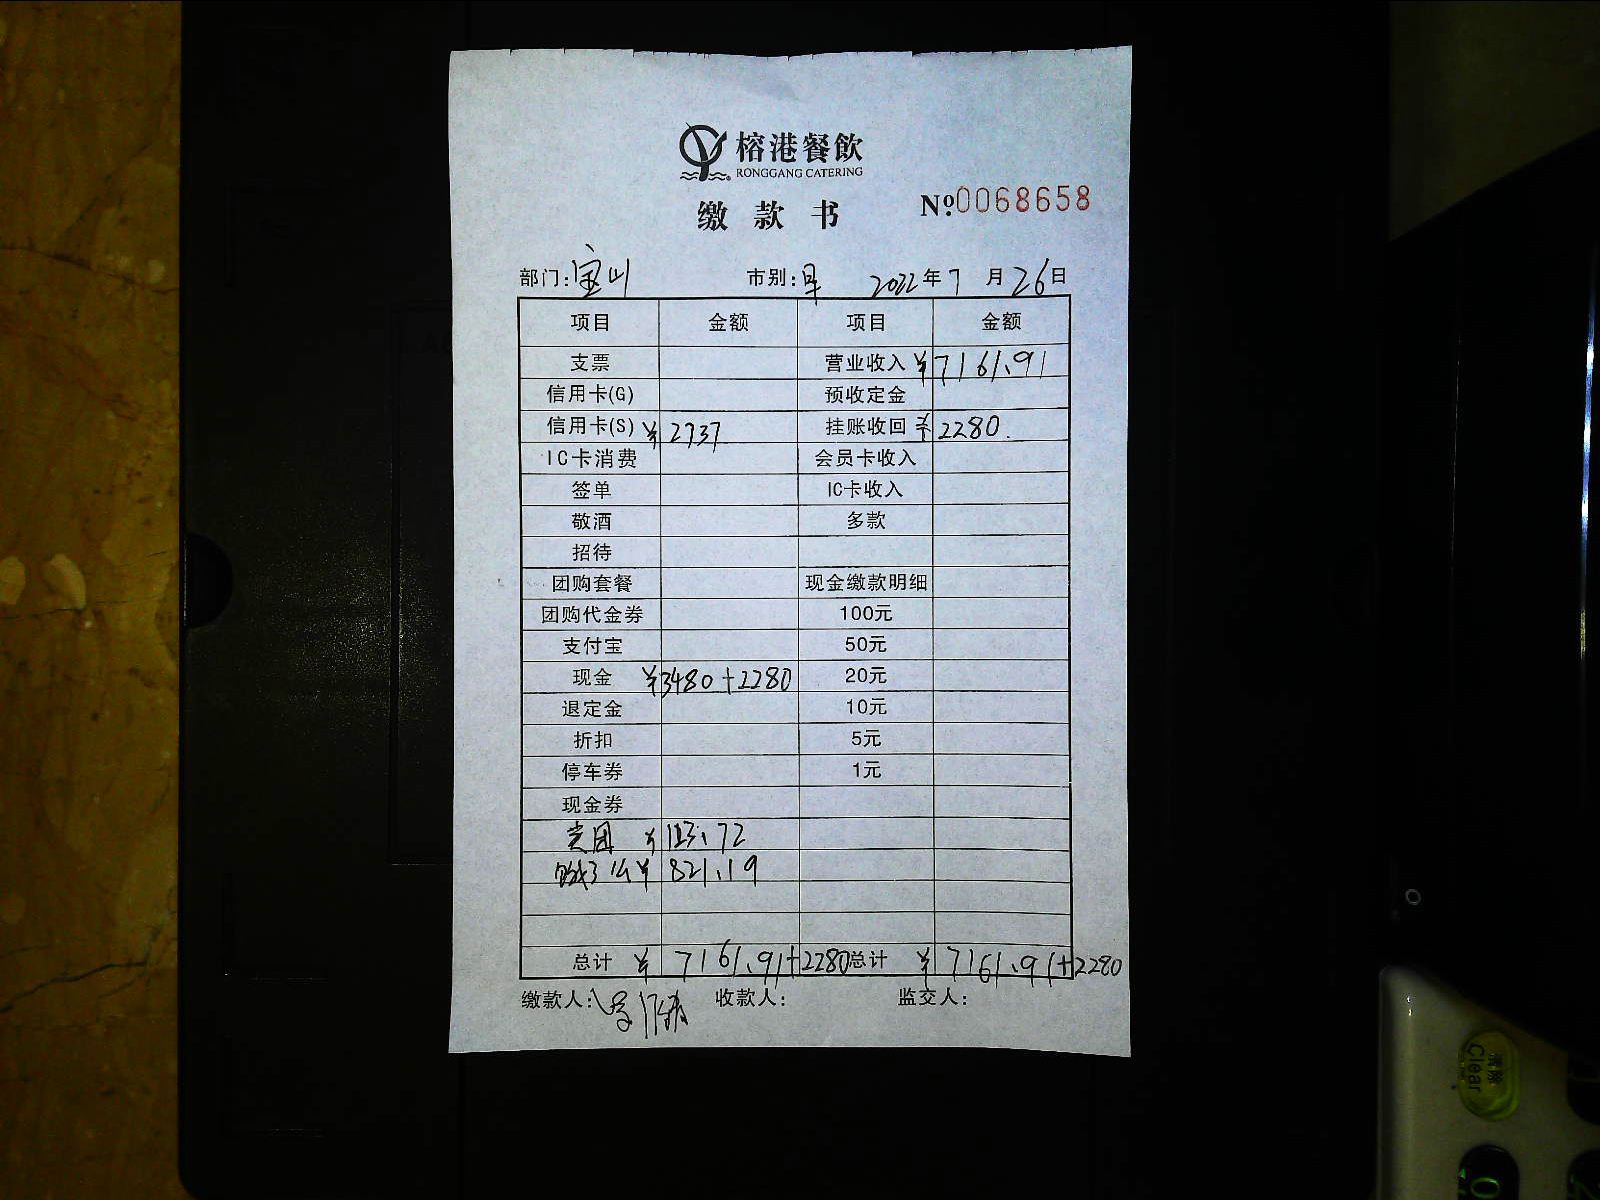 榕港餐飲
RONGGANG CATERING
缴款书 №0068658
部门:宝山 市别:早 2022年7月26日
项目 金额 项目 金额
支票 营业收入 ¥7161.91
信用卡(G) 预收定金
信用卡(S) ¥2737 挂账收回 ¥2280.
IC卡消费 会员卡收入
签单 IC卡收入
敬酒 多款
招待
团购套餐 现金缴款明细
团购代金券 100元
支付宝 50元
现金 ¥3480+2280 20元
退定金 10元
折扣 5元
停车券 1元
现金券
美团 ¥123.72
饿了么 ¥821.19
总计 ¥7161.91+2280 总计 ¥7161.91+2280
缴款人: 收款人: 监交人:
清除
Clear
0